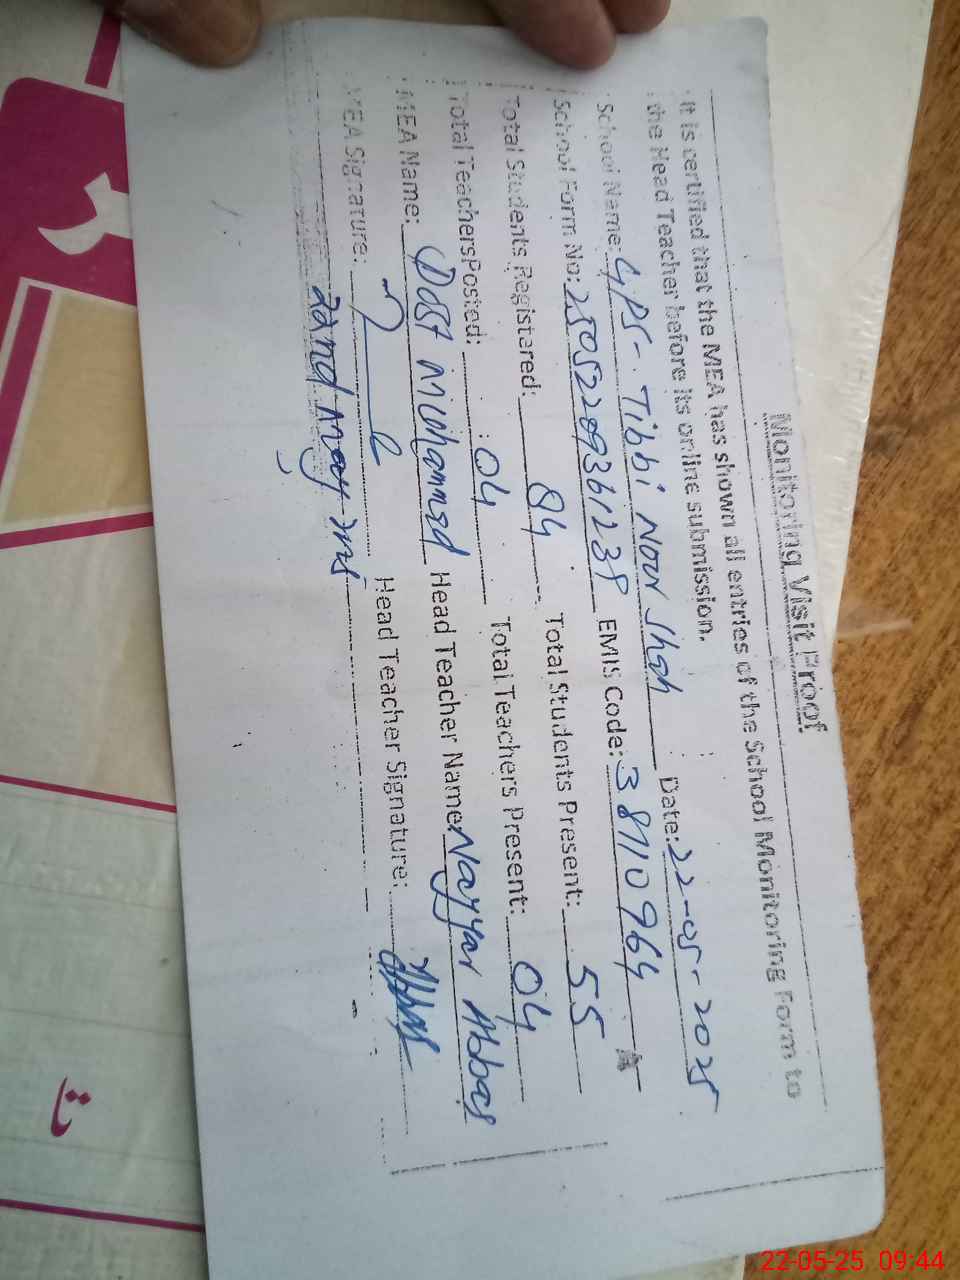 Monitoring Visit Proof
It is certified that the MEA has shown all entries of the School Monitoring Form to
the Head Teacher before its online submission.
School Name: GPS- Tibbi Noor Shah Date: 22-05-2025
School Form No: EMIS Code: 38110964
Total Students Registered: 84 Total Students Present: 55
Total Teachers Posted: 04 Total Teachers Present: 04
MEA Name: Dost Muhammad Head Teacher Name: Nayyar Abbas
MEA Signature: Head Teacher Signature: Abbas
22nd May
ث
22-05-25 09:44